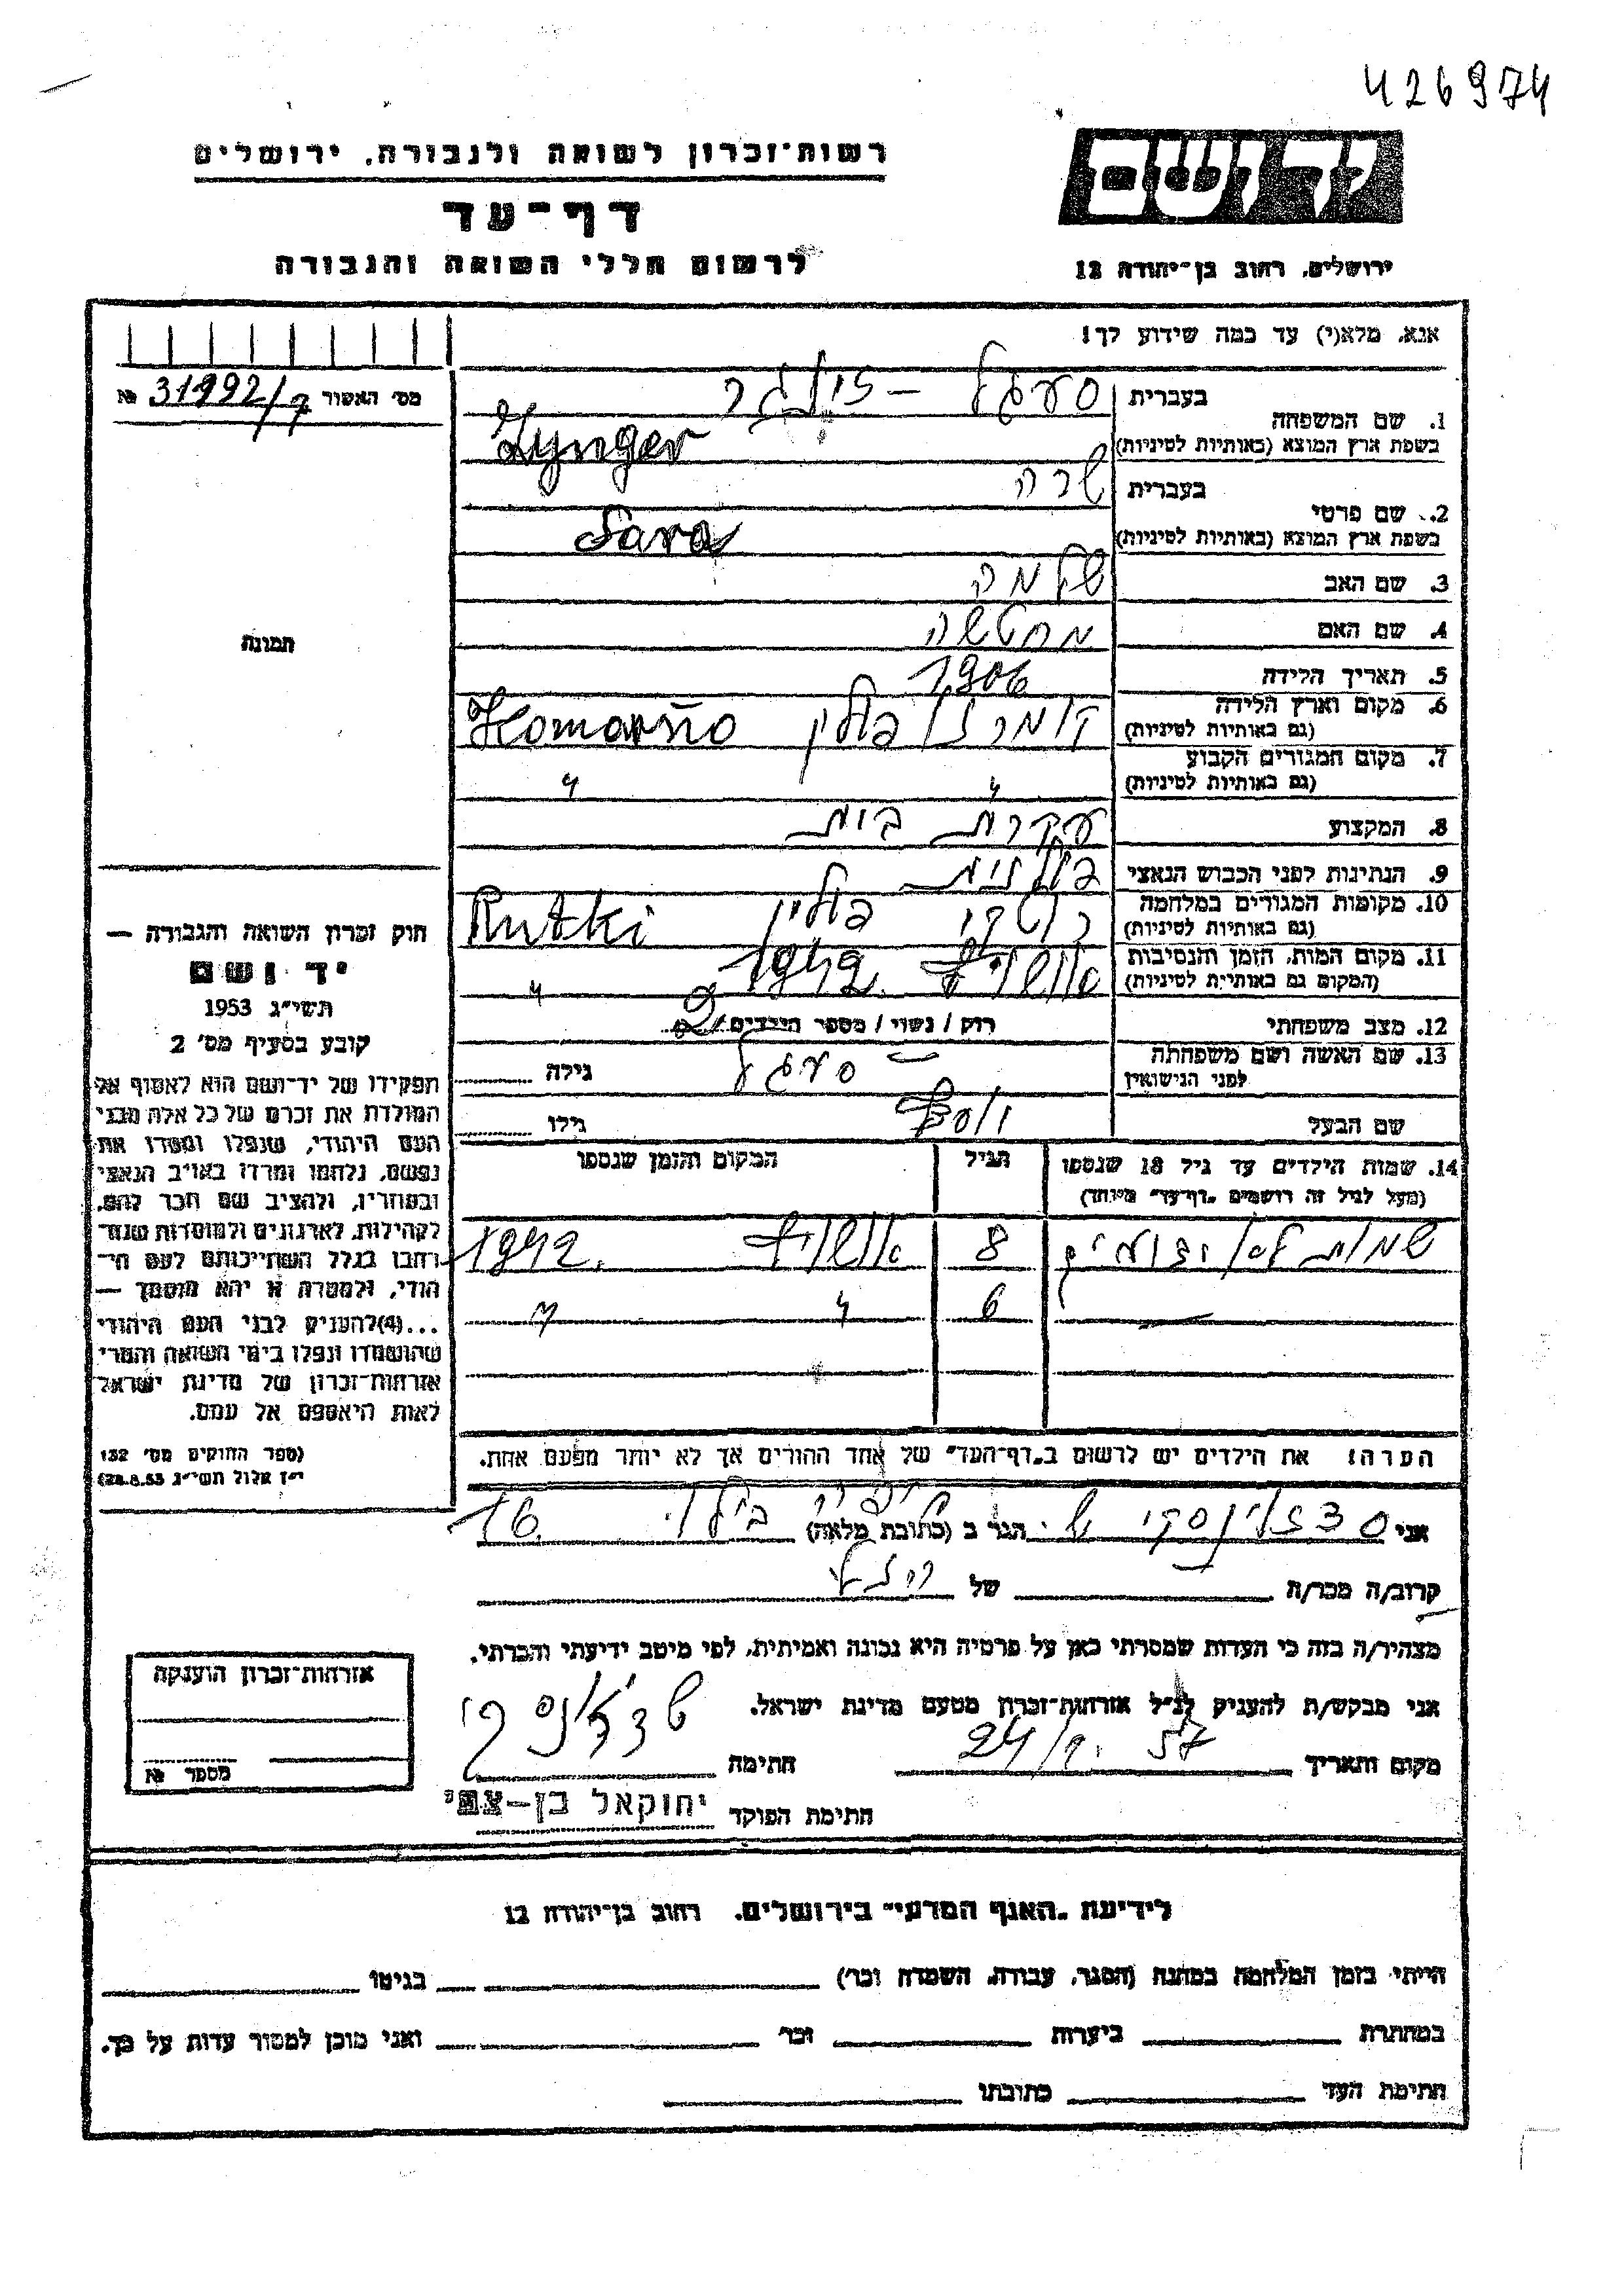 426974
רשות־זכרון לשואה ולגבורה, ירושלים
דף־עד
לרשום חללי השואה והגבורה
יד ושם
ירושלים, רחוב בן־יהודה 12
אנא, מלא(י) עד כמה שידוע לך!
מס׳ האשור № 31992/7
1. שם המשפחה
בעברית סעגל – זינגר
בשפת ארץ המוצא (באותיות לטיניות) Zynger
2. שם פרטי
בעברית שרה
בשפת ארץ המוצא (באותיות לטיניות) Sara
3. שם האב שלמה
4. שם האם
5. תאריך הלידה 1906
6. מקום וארץ הלידה
(גם באותיות לטיניות) פולין Komarno
7. מקום המגורים הקבוע
(גם באותיות לטיניות) 〃 〃
8. המקצוע עקרת בית
9. הנתינות לפני הכבוש הנאצי פולנית
10. מקומות המגורים במלחמה
(גם באותיות לטיניות) רוטקי פולין Rutki
11. מקום המות, הזמן והנסיבות
(המקום גם באותיות לטיניות) 1942. 〃
12. מצב משפחתי רווק / נשוי / מספר הילדים 2
13. שם האשה ושם משפחתה
לפני הנישואין סעגל גילה
שם הבעל יוסף גילו
14. שמות הילדים עד גיל 18 שנספו
(מעל לגיל זה רושמים „דף־עד״ מיוחד)
הגיל
המקום והזמן שנספו
שמות לא 8 1942.
— 6 〃 〃
הערה: את הילדים יש לרשום ב„דף־העד״ של אחד ההורים אך לא יותר מפעם אחת.
תמונה
חוק זכרון השואה והגבורה —
יד ושם
תשי״ג 1953
קובע בסעיף מס׳ 2
תפקידו של יד־ושם הוא לאסוף אל
המולדת את זכרם של כל אלה מבני
העם היהודי, שנפלו ומסרו את
נפשם, נלחמו ומרדו באויב הנאצי
ובעוזריו, ולהציב שם וזכר להם,
לקהילות, לארגונים ולמוסדות שנח־
רבו בגלל השתייכותם לעם הי־
הודי, ולמטרה זו יהא מוסמך —
...(4)להעניק לבני העם היהודי
שהושמדו ונפלו בימי השואה והמרי
אזרחות־זכרון של מדינת ישראל
לאות היאספם אל עמם.
(ספר החוקים מס׳ 132
י״ז אלול תשי״ג 28.8.53)
אני הגר ב (כתובת מלאה) 16
קרוב/ה מכר/ה של
מצהיר/ה בזה כי העדות שמסרתי כאן על פרטיה היא נכונה ואמיתית, לפי מיטב ידיעתי והכרתי.
אני מבקש/ת להעניק לנ״ל אזרחות־זכרון מטעם מדינת ישראל.
מקום ותאריך 57 חתימה
חתימת הפוקד יחזקאל בן-צבי
אזרחות־זכרון הוענקה
מספר №
לידיעת „האגף המדעי״ בירושלים, רחוב בן־יהודה 12
הייתי בזמן המלחמה במחנה (הסגר, עבודה, השמדה וכו׳) בגיטו
במחתרת ביערות וכו׳ ואני מוכן למסור עדות על כך.
חתימת העד כתובתו